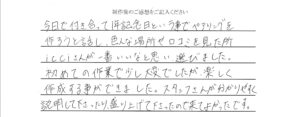 制作後のご感想をご記入ください
今日で付き合って1年記念日という事でペアリングを
作ろうと話し、色んな場所や口コミを見た所
icciさんが一番いいなと思い選びました。
初めての作業で少し大変でしたが、楽しく
作成する事ができました。スタッフさんが分かりやすく
説明して下さったり、盛り上げて下さったので来てよかったです。